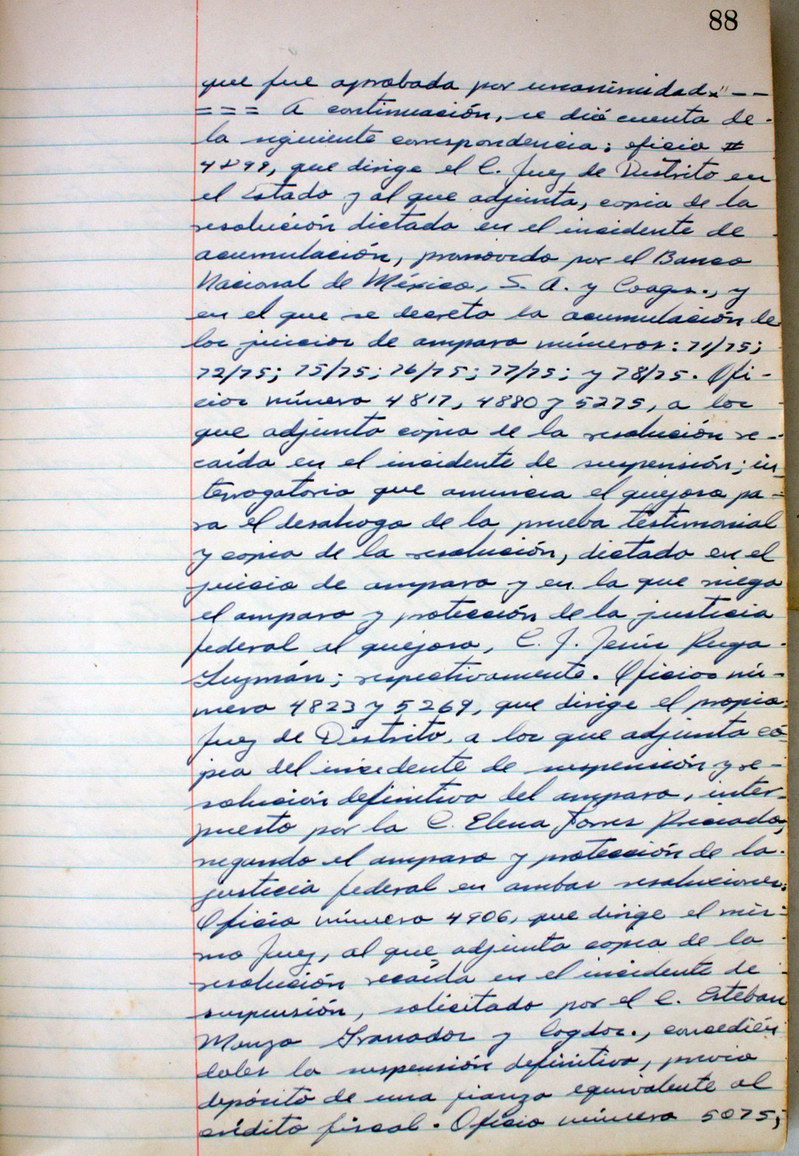 88
que fue aprobada por unanimidad." - -
= = = A continuación, se dió cuenta de
la siguiente correspondencia: oficio #
4899, que dirige el C. Juez de Distrito en
el Estado y al que adjunta, copia de la
resolución dictada en el incidente de
acumulación, promovido por el Banco
Nacional de México, S. A. y Coags., y
en el que se decreta la acumulación de
los juicios de amparo números: 71/75;
72/75; 75/75; 76/75; 77/75; y 78/75. Ofi-
cios número 4817, 4880 y 5275, a los
que adjunta copia de la resolución re-
caída en el incidente de suspensión; in
terrogatorio que anuncia el quejoso pa-
ra el desahogo de la prueba testimonial
y copia de la resolución, dictado en el
juicio de amparo y en la que niega
el amparo y protección de la justicia
federal al quejoso, C. J. Jesús Puga
Guzmán; respectivamente. Oficios nú-
mero 4823 y 5269, que dirige el propio
Juez de Distrito, a los que adjunta co
pia del incidente de suspensión y re-
solución definitiva del amparo, inter-
puesto por la C. Elena Torres Preciado,
negando el amparo y protección de la
justicia federal en ambas resoluciones.
Oficio número 4906, que dirige el mis-
mo Juez, al que adjunta copia de la
resolución recaída en el incidente de
suspensión, solicitado por el C. Esteban
Manzo Granados y Cogdos., concedién
doles la suspensión definitiva, previo
depósito de una fianza equivalente al
crédito fiscal. Oficio número 5075;